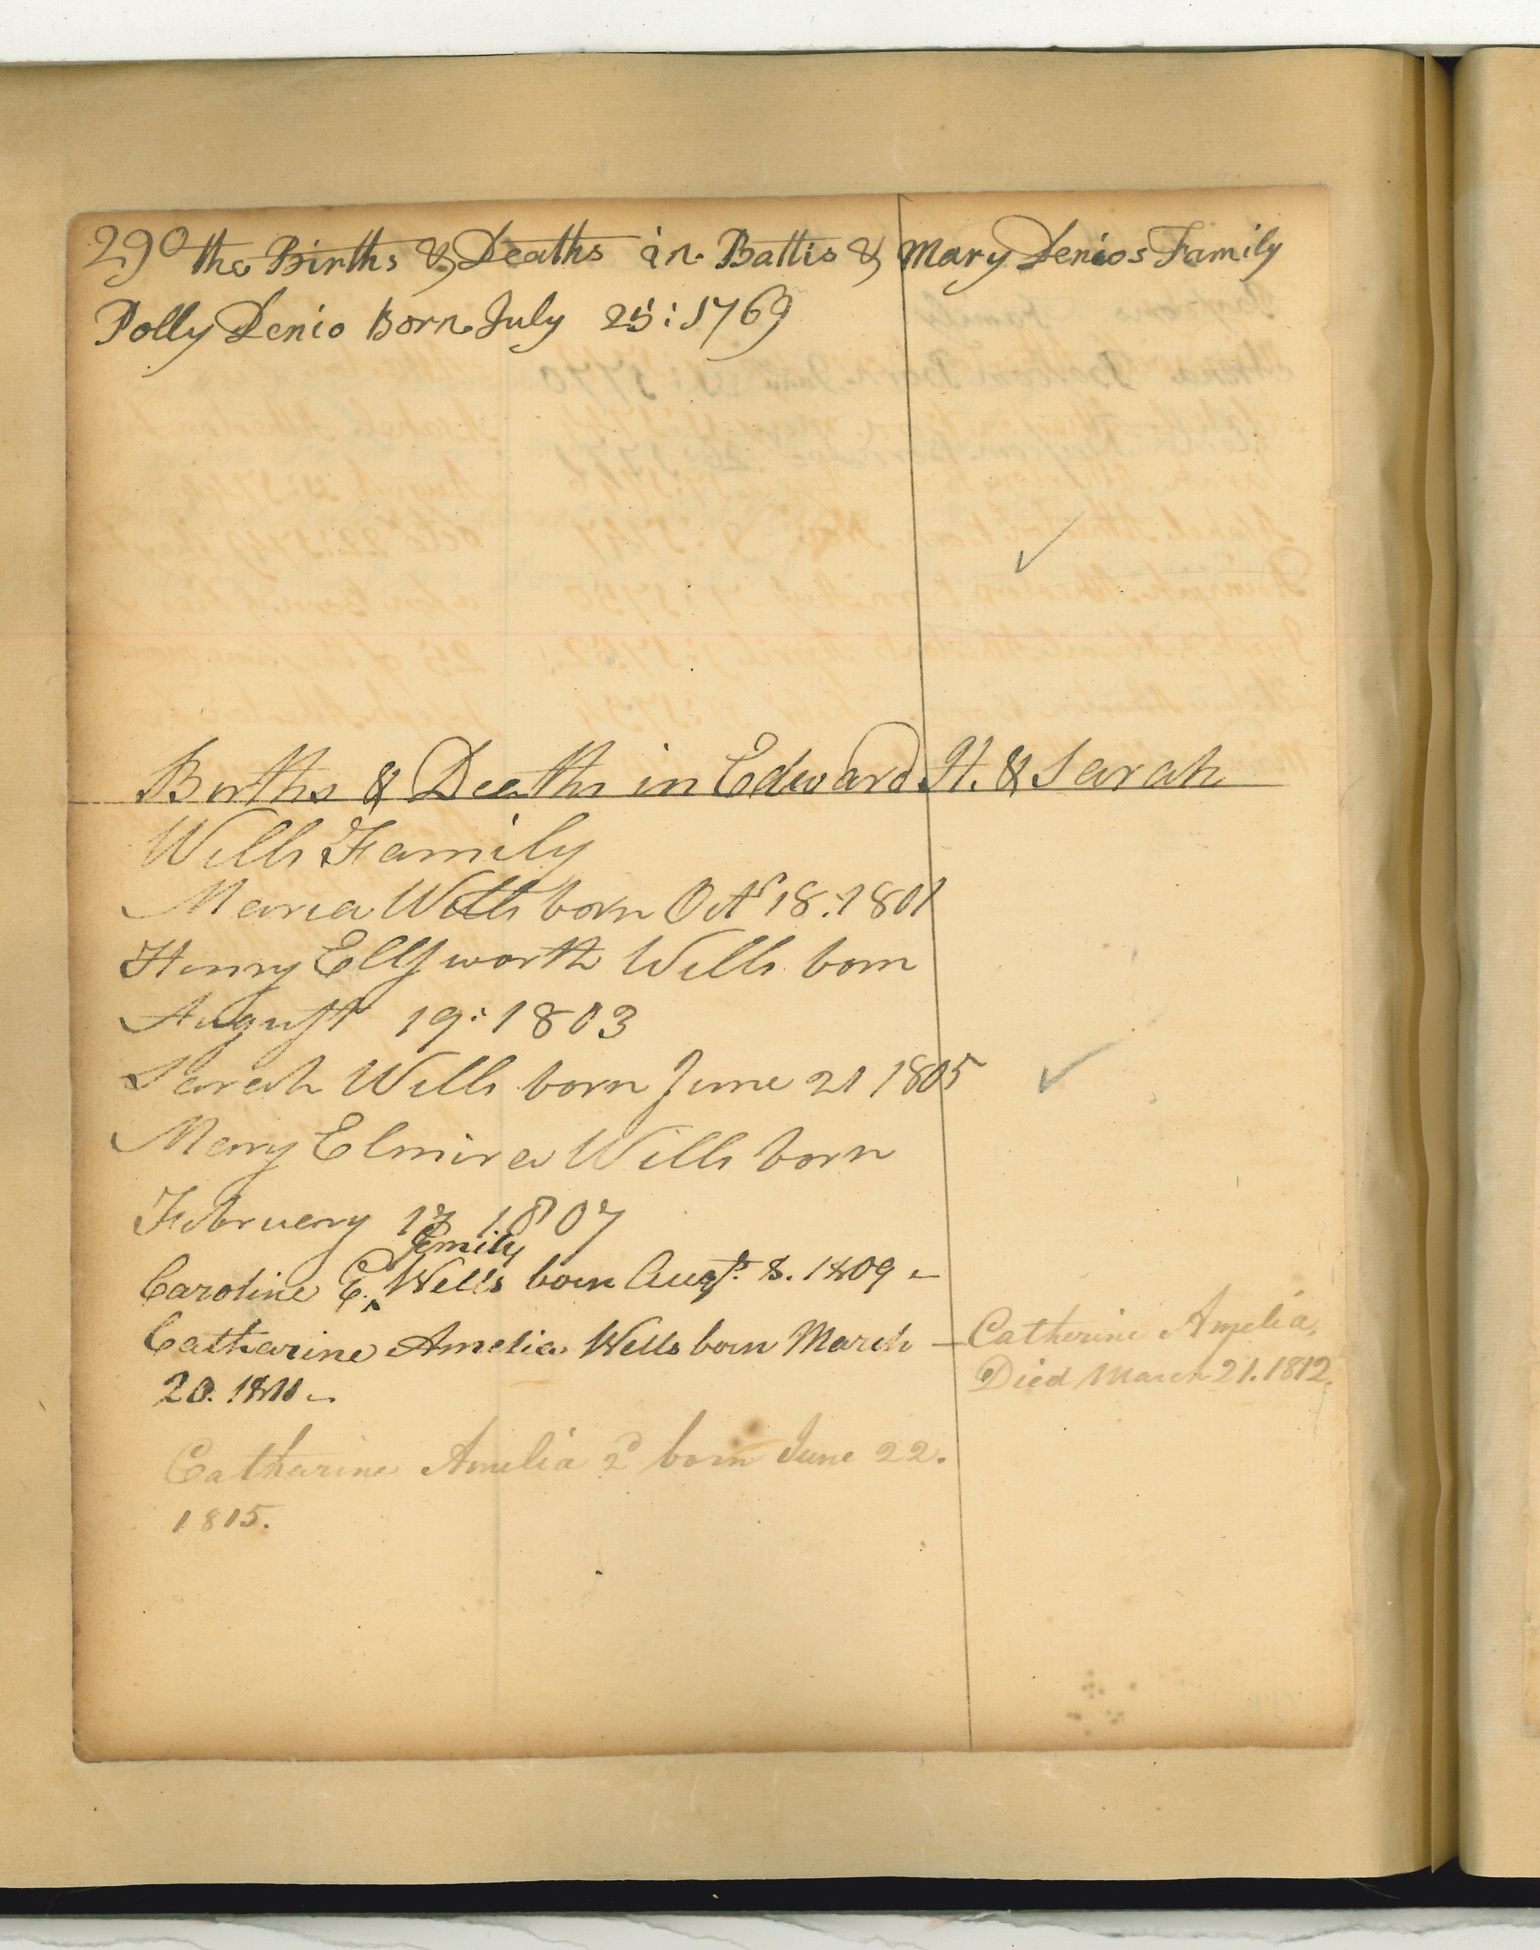 290 the Births & Deaths in Battis & Mary Denios Family
Polly Denio Born July 25: 1769
Births & Deaths in Edward H. & Sarah
Wells Family
Maria Wells born Octr 18: 1801
Henry Ellsworth Wells born
August 19: 1803
Sarah Wells born June 21 1805
Mary Elmira Wells born
February 17 1807
Emily
Caroline E. ^ Wells born Augst. 8. 1809
Catharine Amelia Wells born March — Catherine Amelia
20. 1811 Died March 21. 1812.
Catharine Amelia 2d born June 22.
1815.